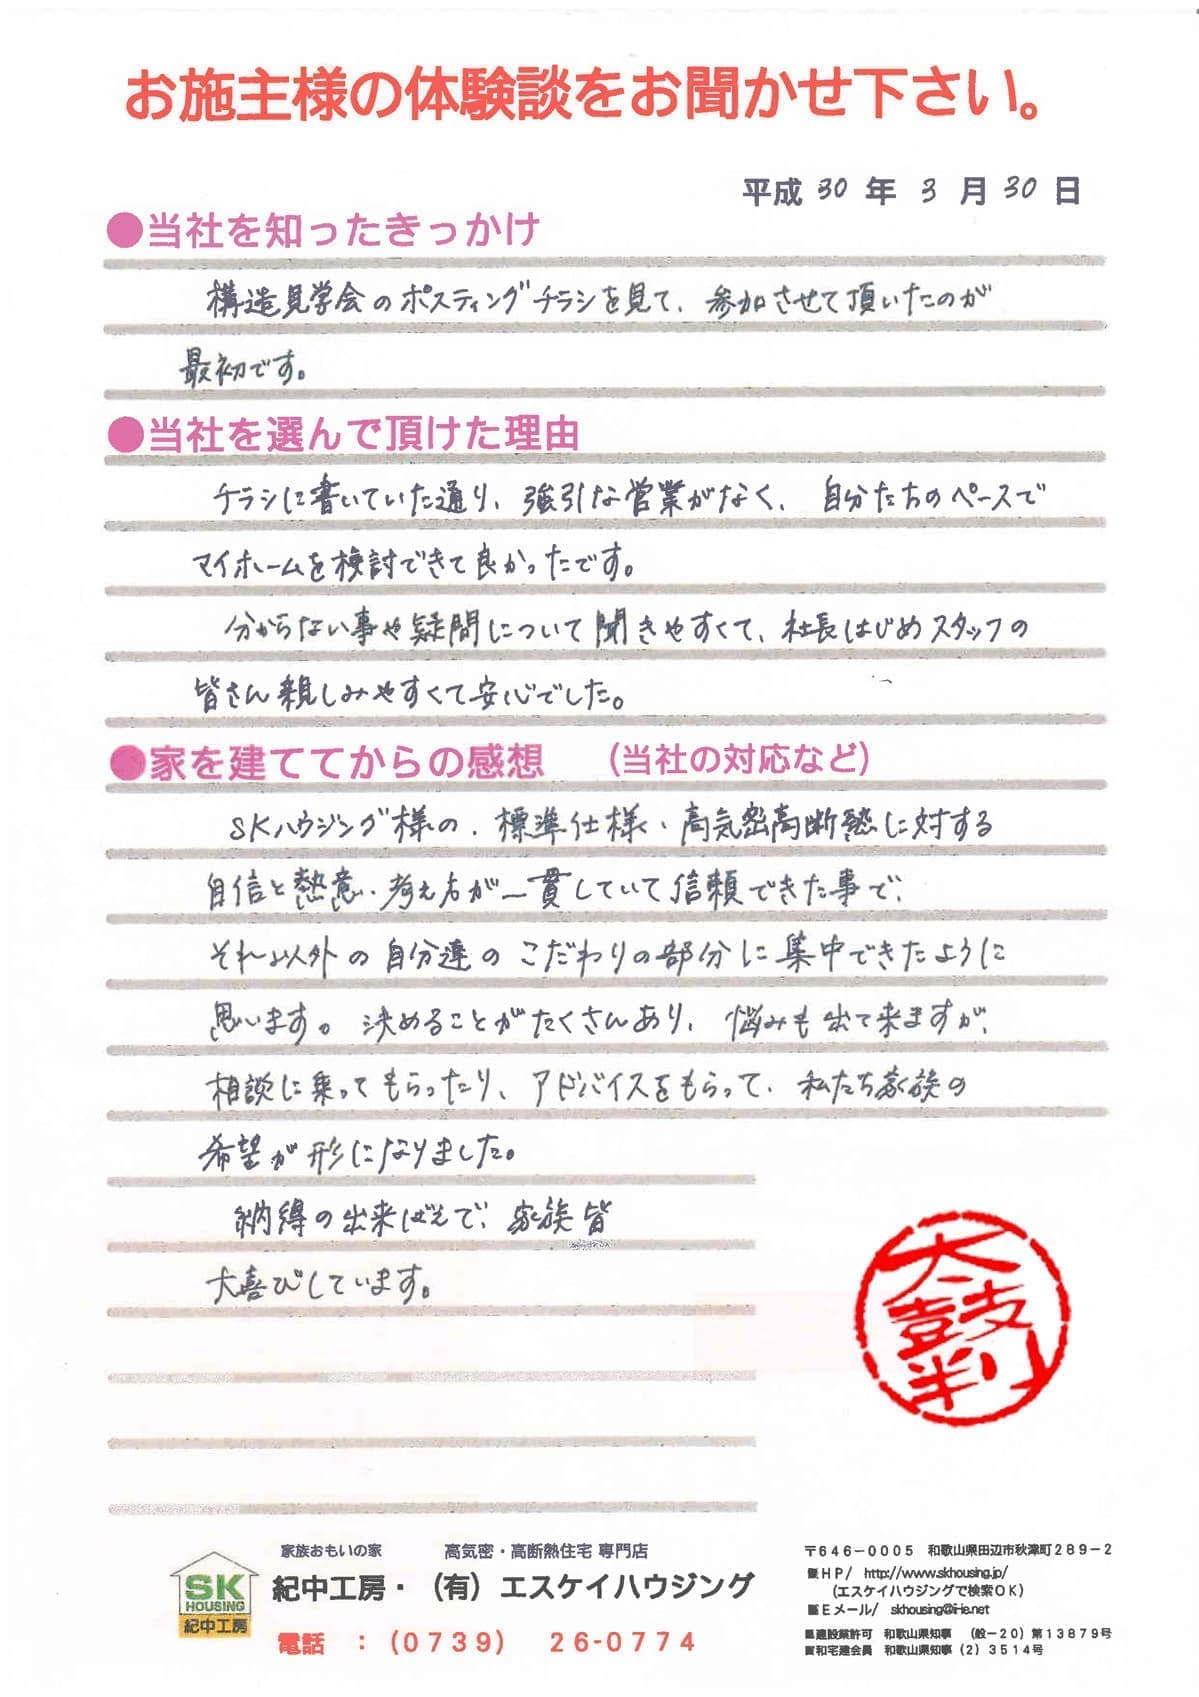 お施主様の体験談をお聞かせ下さい。
平成 30 年 3 月 30 日
●当社を知ったきっかけ
構造見学会のポスティングチラシを見て、参加させて頂いたのが
最初です。
●当社を選んで頂けた理由
チラシに書いていた通り、強引な営業がなく、自分たちのペースで
マイホームを検討できて良かったです。
分からない事や疑問について聞きやすくて、社長はじめスタッフの
皆さん親しみやすくて安心でした。
●家を建ててからの感想 (当社の対応など)
SKハウジング様の、標準仕様・高気密高断熱に対する
自信と熱意・考え方が一貫していて信頼できた事で、
それ以外の自分達のこだわりの部分に集中できたように
思います。決めることがたくさんあり、悩みも出て来ますが、
相談に乗ってもらったり、アドバイスをもらって、私たち家族の
希望が形になりました。
納得の出来ばえで、家族皆
大喜びしています。
太鼓判
SK
HOUSING
紀中工房
家族おもいの家 高気密・高断熱住宅 専門店
紀中工房・(有)エスケイハウジング
電話 :(0739) 26-0774
〒646-0005 和歌山県田辺市秋津町289-2
HP/ http://www.skhousing.jp/
(エスケイハウジングで検索OK)
Eメール/ skhousing@iHe.net
建設業許可 和歌山県知事 (般-20)第13879号
和宅建会員 和歌山県知事(2)3514号